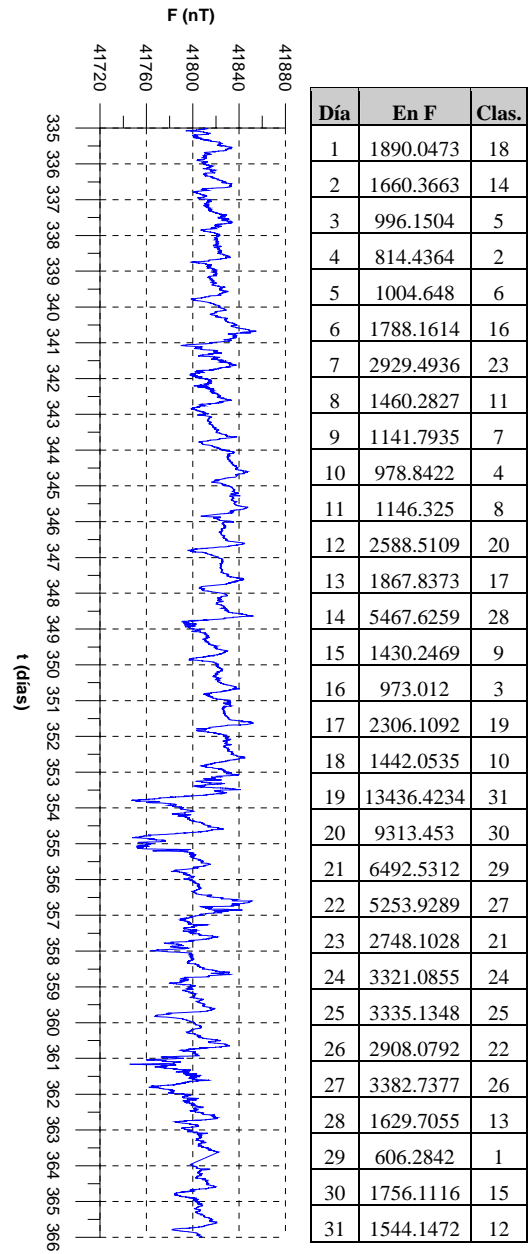 F (nT)
41720 41760 41800 41840 41880
335
336
337
338
339
340
341
342
343
344
345
346
347
348
349
350
351
352
353
354
355
356
357
358
359
360
361
362
363
364
365
366
t (días)
Día En F Clas.
1 1890.0473 18
2 1660.3663 14
3 996.1504 5
4 814.4364 2
5 1004.648 6
6 1788.1614 16
7 2929.4936 23
8 1460.2827 11
9 1141.7935 7
10 978.8422 4
11 1146.325 8
12 2588.5109 20
13 1867.8373 17
14 5467.6259 28
15 1430.2469 9
16 973.012 3
17 2306.1092 19
18 1442.0535 10
19 13436.4234 31
20 9313.453 30
21 6492.5312 29
22 5253.9289 27
23 2748.1028 21
24 3321.0855 24
25 3335.1348 25
26 2908.0792 22
27 3382.7377 26
28 1629.7055 13
29 606.2842 1
30 1756.1116 15
31 1544.1472 12